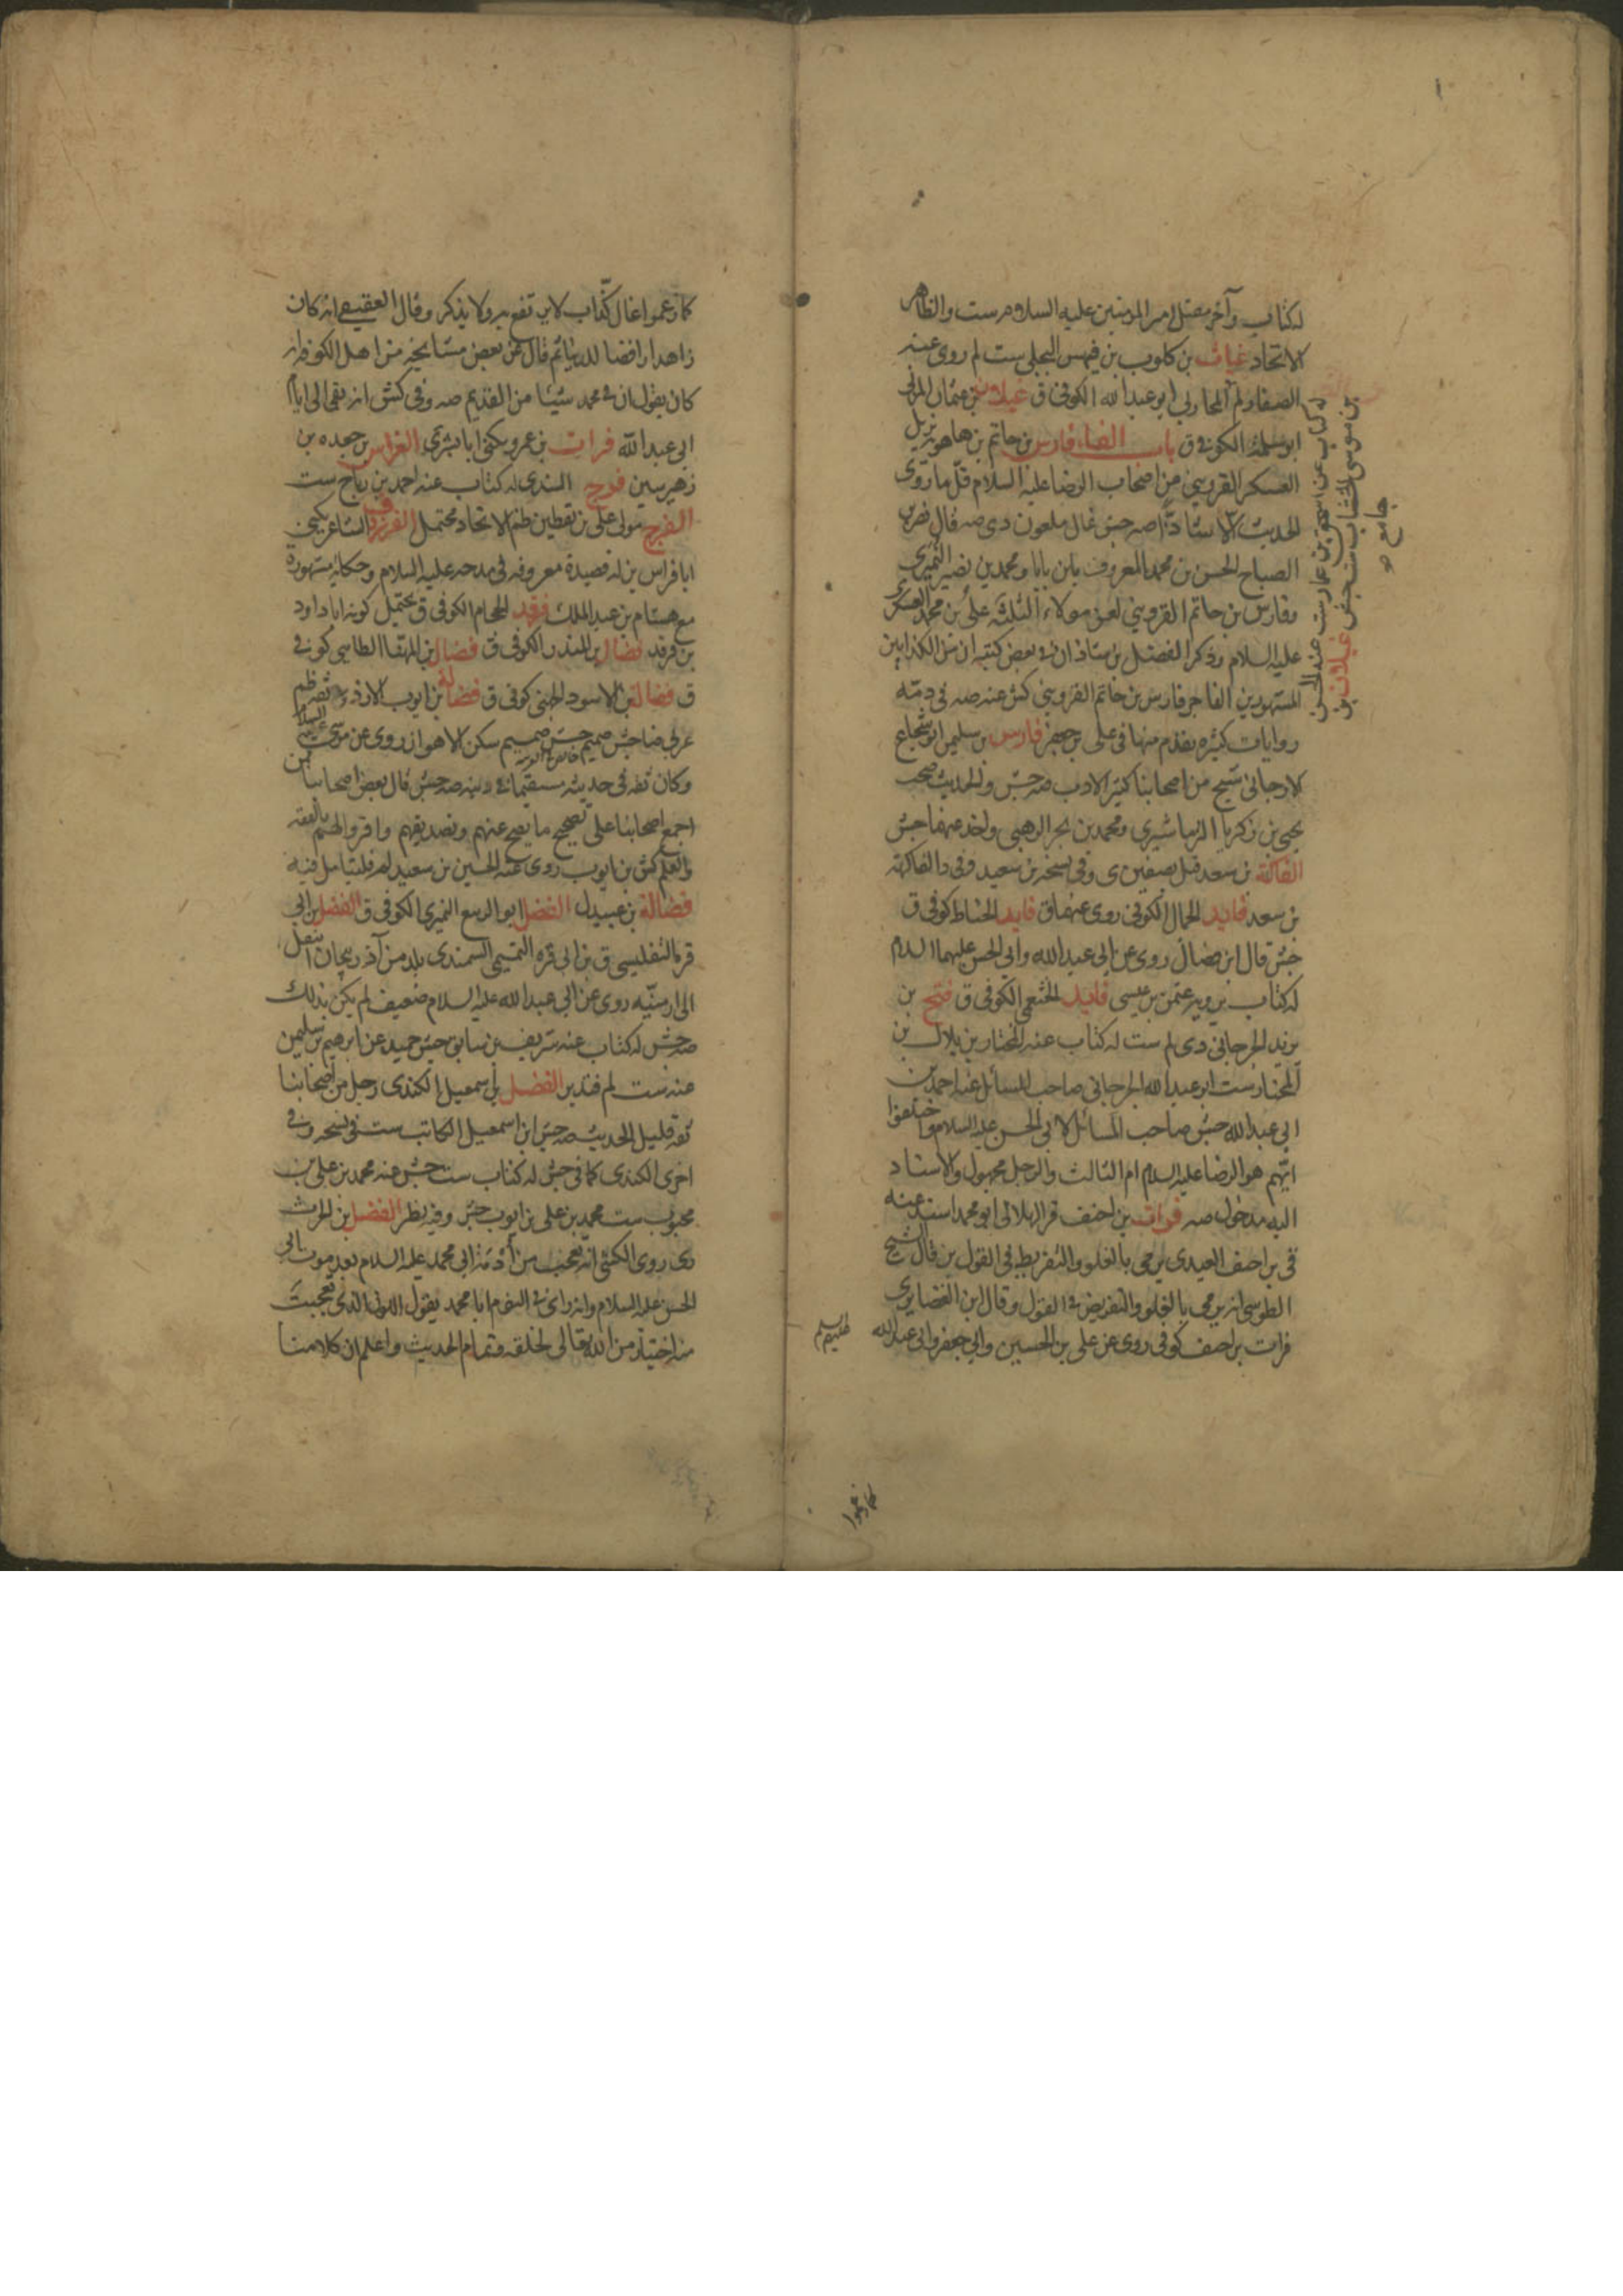 له كتاب وآخر مقتل امير المؤمنين عليه السلام ست والظاهر
الاتحاد غياث بن كلوب بن فيهس البجلى ست لم روى عنه
الصفار لم المحاربى ابو عبدالله الكوفى ق غيلان بن عثمان المزنى
ابو سلمة الكوفى ق باب الفاء فارس بن حاتم بن ماهويه نزيل
العسكر القزوينى من اصحاب الرضا عليه السلام قل ما روى
الحديث الا شاذا صه جش غال ملعون دى صه قال نصر بن
الصباح الحسن بن محمد المعروف بابن بابا ومحمد بن نصير النميرى
وفارس بن حاتم القزوينى لعن هولاء الثلثة على بن محمد العسكرى
عليه السلام وذكر الفضل بن شاذان فى بعض كتبه ان من الكذابين
المشهورين الفاجر فارس بن حاتم القزوينى كش عنه صه فى ذمه
روايات كثيره تقدم منها فى على بن جعفر فارس بن سليمن ابو شجاع
الارجانى شيخ من اصحابنا كثير الادب صه جش والحديث صحب
يحيى بن زكريا النرماشيرى ومحمد بن بحر الرهنى واخذ عنهما جش
الفاكه بن سعد قتل بصفين ى وفى نسخه بن سعيد وفى د الفاكهة
بن سعد فايد الحمال الكوفى روى عنهما ق فايد الحناط كوفى ق
جش قال ابن فضال روى عن ابى عبد الله وابى الحسن عليهما السلام
له كتاب يرويه عثمن بن عيسى فايد الخثعمى الكوفى ق فتح بن
يزيد الجرجانى دى لم ست له كتاب عنه المختار بن بلال بن
المختار ست ابو عبد الله الجرجانى صاحب المسائل عنه احمد بن
ابى عبد الله جش صاحب المسائل لابى الحسن عليه السلام واختلفوا
ايهم هو الرضا عليه السلام ام الثالث والرجل مجهول والاسناد
اليه مدخول صه فرات بن احنف قر الهلالى ابو محمد اسند عنه
ق بن احنف العبدى يرمى بالغلو والتفريط فى القول ين قال الشيخ
الطوسى انه يرمى بالغلو والتفريض فى القول وقال ابن الغضايرى
فرات بن احنف كوفى روى عن على بن الحسين وابى جعفر وابى عبدالله
عليهم سلم
كما زعموا
له كتاب عن اسحق بن عمار ست عنه الحسن
بن موسى الخشاب ست جش غيلان بن
جامع ق
كما زعموا غال كذاب لا يرتفع به ولا يذكر وقال العقيقى انه كان
زاهدا رافضا للدنيا ثم قال عن بعض مشايخه من اهل الكوفه انه
كان يقول ان فى محمد شيئا من القديم صه وفى كش انه بقى الى ايام
ابى عبد الله فرات بن عمرو يكنى ابا بشر ى الفراس بن جعده بن
زهير سين فرج السندى له كتاب عنه احمد بن رباح ست
الفرج مولى على بن يقطين ظم الاتحاد محتمل الفرزدق الشاعر يكنى
ابا فراس ين له قصيدة معروفه فى مدحه عليه السلام وحكاية مشهورة
مع هشام بن عبد الملك فرقد الحجام الكوفى ق يحتمل كونه ابا داود
بن فرقد فضال بن المنذر الكوفى ق فضال بن المهنا الطاسى كوفى
ق فضالة بن الاسود الجهنى كوفى ق فضالة بن ايوب الازدى ثقه ظم
عربى ضا جش صميم جش صميم سكن الاهواز روى عن موسى عليه السلام
وكان ثقه فى حديثه مستقيما فى دينه صه جش قال بعض اصحابنا ممن
اجمع اصحابنا على تصحيح ما يصح عنهم وتصديقهم واقروا لهم بالفقه
والعلم كش بن ايوب روى عنه الحسين بن سعيد لم فليتامل فيه
فضالة بن عبيد ل الفضل ابو الربيع النميرى الكوفى ق الفضل بن ابى
قره التفليسى ق بن ابى قره التميمى السمندى بلد من آذربيجان انتقل
الى ارمنيه روى عن ابى عبد الله عليه السلام ضعيف لم يكن بذلك
صه جش له كتاب عنه شريف بن سابق جش حميد عن ابرهيم بن سليمن
عنه ست لم فتدبر الفضل بن اسمعيل الكندى رجل من اصحابنا
ثقه قليل الحديث صه جش ابن اسمعيل الكاتب ست فى نسخه وفى
اخرى الكندى كما فى جش له كتاب ست جش عنه محمد بن على بن
محبوب ست محمد بن على بن ايوب جش وفيه نظر الفضل بن الحرث
دى روى الكشى انه تعجب من أدمة ابى محمد عليه السلام بعد موت ابى
الحسن عليه السلام وانه راى فى النوم ابا محمد يقول اللون الذى تعجبت
منه اختيار من الله تعالى لخلقه وتمام الحديث واعلم ان كلامنا